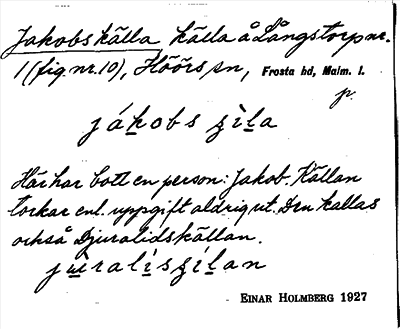 Jakobskälla källa å Långstorp nr.
1 (fig. nr. 10), Höörs sn, Frosta hd, Malm. l.
p.
jákobs ʂìla
Här har bott en person: Jakob. Källan
torkar enl. uppgift aldrig ut. Den kallas
också Djuralidskällan.
jʉ̀ralísʂílan
EINAR HOLMBERG 1927